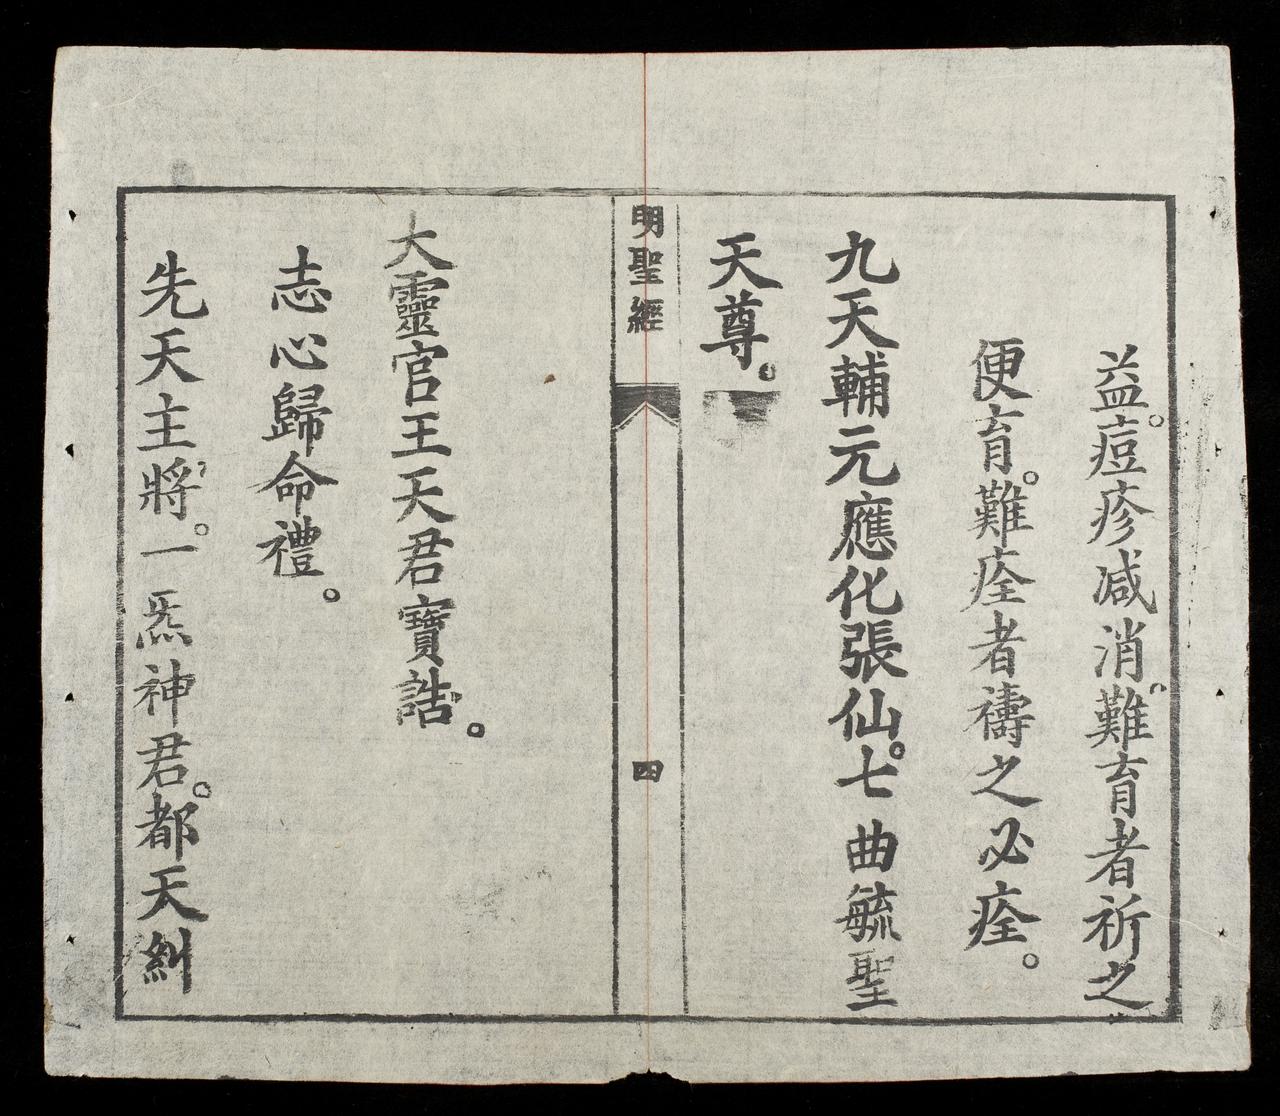 益。痘疹减消。難育者祈之
便育。難痊者禱之必痊。
九天輔元應化張仙。七曲毓聖
天尊。
明聖經
四
大靈官王天君寶誥。
志心歸命禮。
先天主將。一炁神君。都天糾